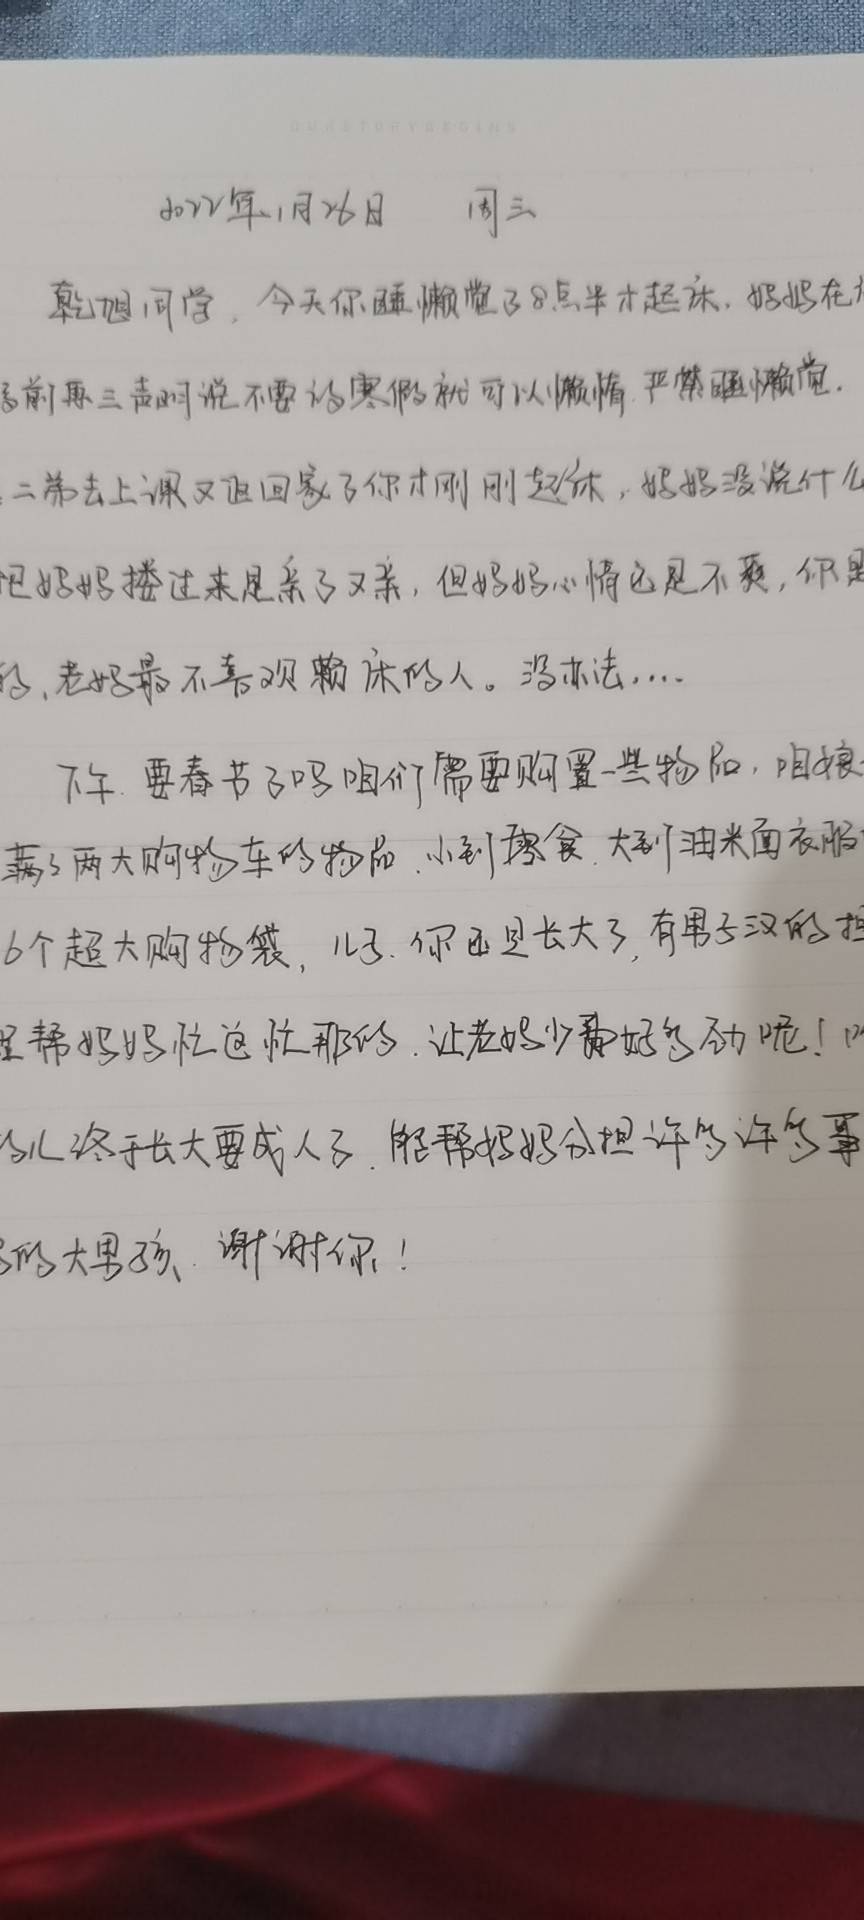 OURSTORYBEGINS
2022年1月26日 周三
乾旭同学，今天你睡懒觉了8点半才起床，妈妈在
前再三声明说不要放寒假就可以懒惰，严禁睡懒觉。
二弟去上课又返回家了你才刚刚起床，妈妈没说什么
把妈妈搂过来是亲了又亲，但妈妈心情还是不爽，你是
的，老妈最不喜欢赖床的人。没办法....
下午，要春节了吗咱们需要购置一些物品，咱娘
满了两大购物车的物品，小到零食，大到油米面衣服
6个超大购物袋，儿子，你还是长大了，有男子汉的担
里帮妈妈忙这忙那的，让老妈少费好多劲呢！
儿终于长大要成人了，能帮妈妈分担许多许多事
的大男孩，谢谢你！